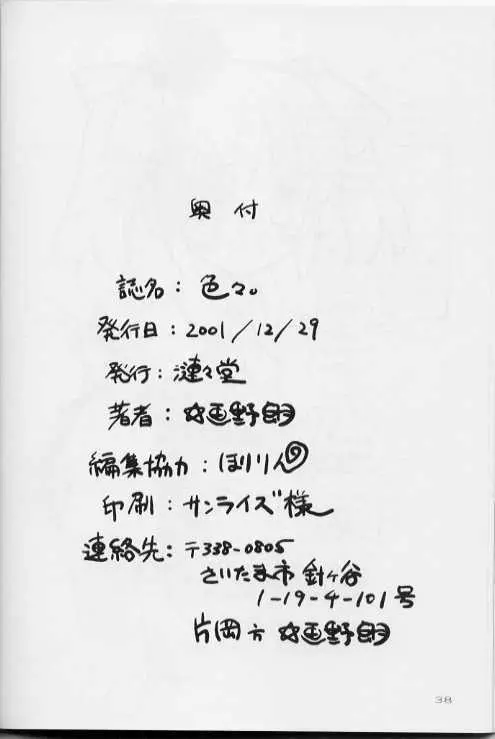 奥付
誌名：色々。
発行日：2001/12/29
発行：漣々堂
著者：野郎
編集協力：ほりりん
印刷：サンライズ様
連絡先：〒338-0805
さいたま市 針ヶ谷
1-19-4-101号
片岡方 野郎
38